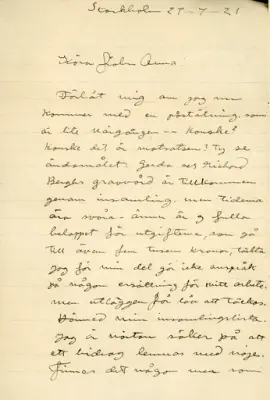 Stockholm 27-7-21
Kära Fröken Anna!
Förlåt mig om jag nu
kommer med en påställning som
är lite närgången -- kanske?
Kanske det är motsatsen? Ty se
ändamålet: Gerda och Richard
Berghs gravvård är tillkommen
genom insamling, men tiderna
äro svåra - ännu är ej fulla
beloppet för utgifterna, som gå
till även fem tusen kronor,
jag för min del gör icke anspråk
på någon ersättning för mitt arbete.
men utläggen får lov att täckas.
Härmed min insamlingslista.
Jag är nästan säker på att
ett bidrag lemnas med nöje.
Finnes det någon mer som